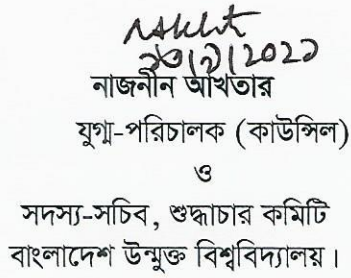 নাজনীন আখতার
যুগ্ম-পরিচালক (কাউন্সিল)
ও
সদস্য-সচিব, শুদ্ধাচার কমিটি
বাংলাদেশ উন্মুক্ত বিশ্ববিদ্যালয়।